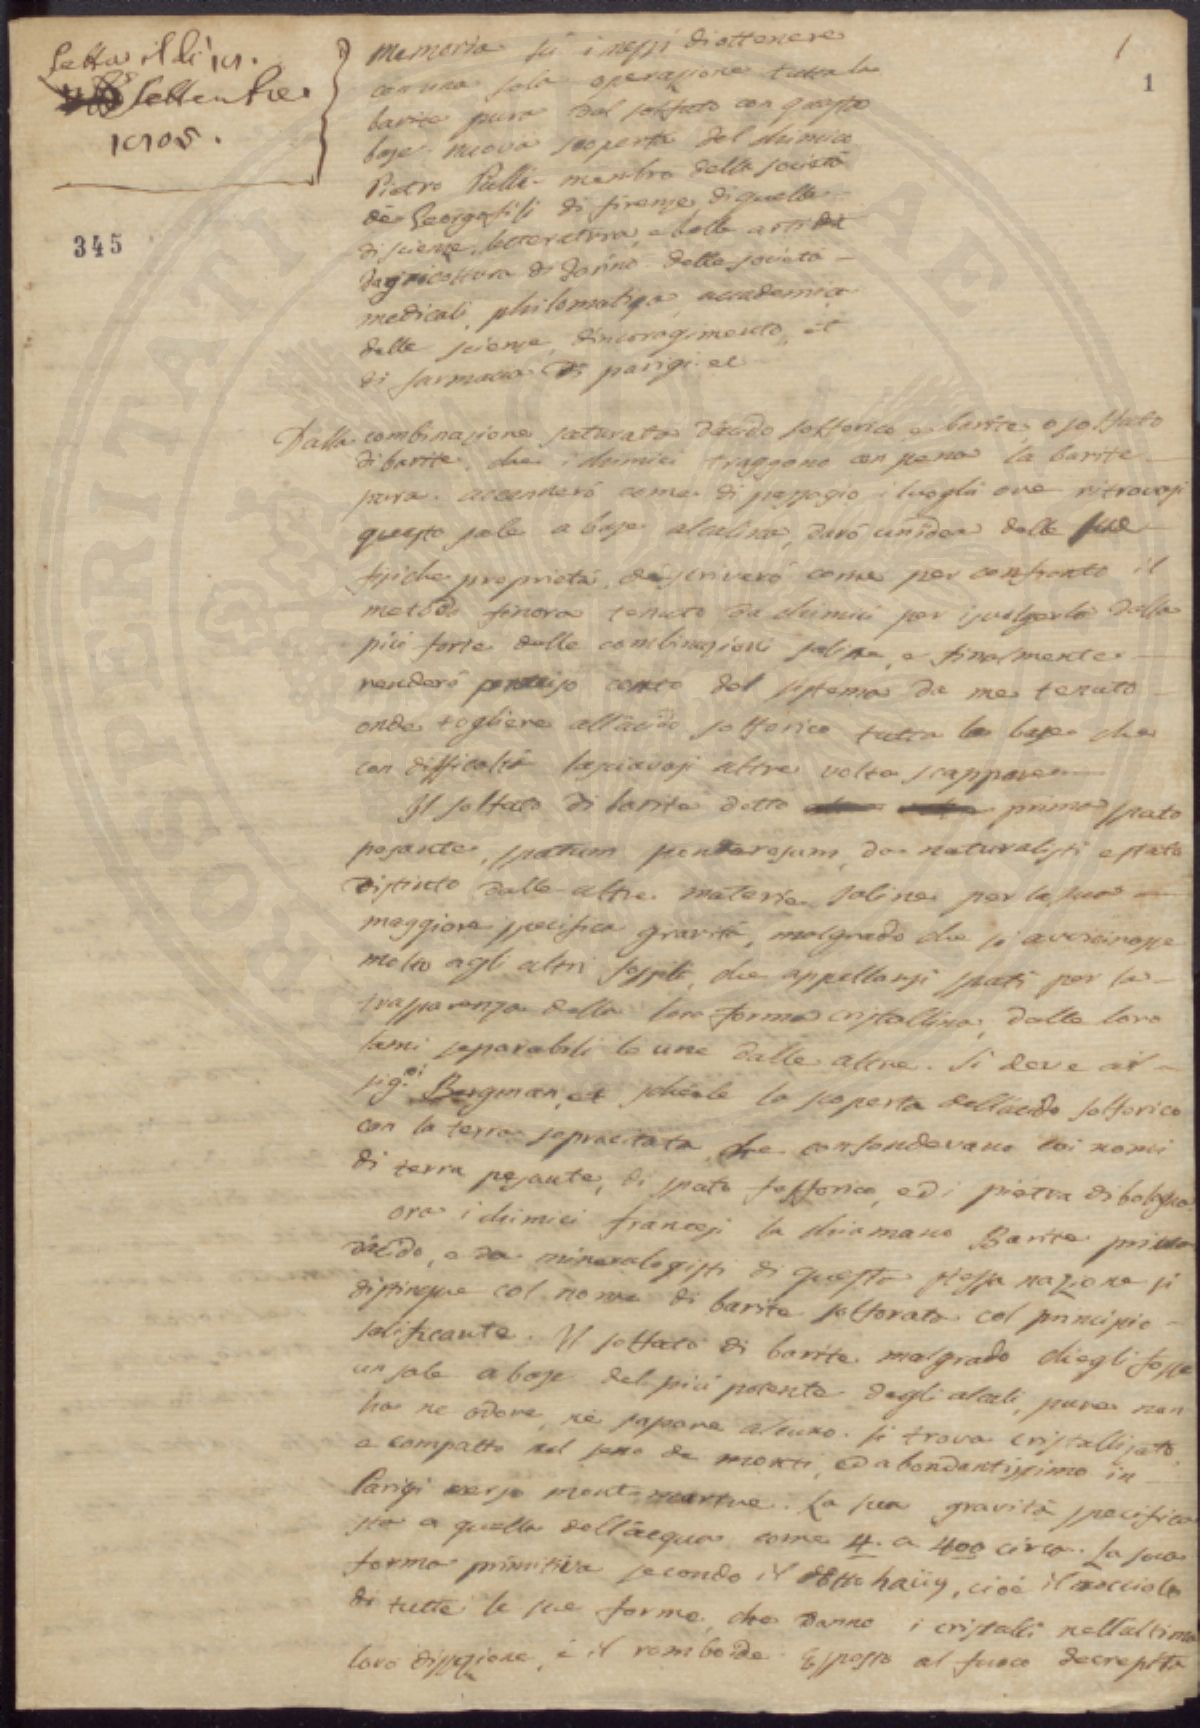 Letta il dì 11.
Settembre
1805.
1
345
Memoria su i mezzi di ottenere
con una sola operazione tutta la
barite pura dal solfato con questa
base. nuova scoperta del chimico
Pietro Pulli. membro della società
de Georgofili di firenze di quelle
di scienze, letteratura, e belle arti
dagricoltura di Torino. delle società
medicali, philomatiqa, accademica
delle scienze, dincoragimento, et
di farmacia di parigi ec
Dalla combinazione saturata dàcido solforico e barite, o solfato
di barite, che i chimici traggono con pena la barite
pura. accennerò come di passagio i luoghi ove ritrovasi
questo sale a base alcalina, darò un'idea delle sue
fisiche proprietà, descriverò come per confronto il
metodo finora tenuto da chimici per isvolgerla dalla
più forte delle combinazioni saline, e finalmente
renderò preciso conto del sistema da me tenuto
onde togliere all'acido solforico tutta la base che
con difficoltà lasciavasi altre volte scappare
Il solfato di barite detto prima spato
pesante, spatum ponderosum, da naturalisti e stato
distinto dalle altre materie saline per la sua
maggiore specifica gravità, malgrado che si avvicinasse
molto agli altri fossili, che appellansi spati per la
trasparenza della loro forma cristallina, dalle loro
lami separabili le une dalle altre. Si deve ai
sig.ri Bergman, et schéele la scoperta dell'acido solforico
con la terra sopracitata, che confondevano coi nomi
di terra pesante, di spato fosforico, ed i pietra di bologna
ora i chimici francesi la chiamano Barite
dàcido, e da mineralogisti di questa stessa nazione si
distingue col nome di barite solforata col principio
salificante. Il solfato di barite malgrado ch'egli fosse
un sale a base del più potente degli alcali, pure non
ha ne odore, nè sapore alcuno. si trova cristallizato,
e compatto nel seno de monti, ed abondantissimo in
Parigi verso mont-martre. La sua gravità specifica
sta a quella dell'acqua come 4. a 400 circa. La sua
forma primitiva secondo il haüy, cioè il nocciolo
di tutte le sue forme, che danno i cristalli nell'ultima
loro dissezione, è il romboide. Esposto al fuoco decrepita